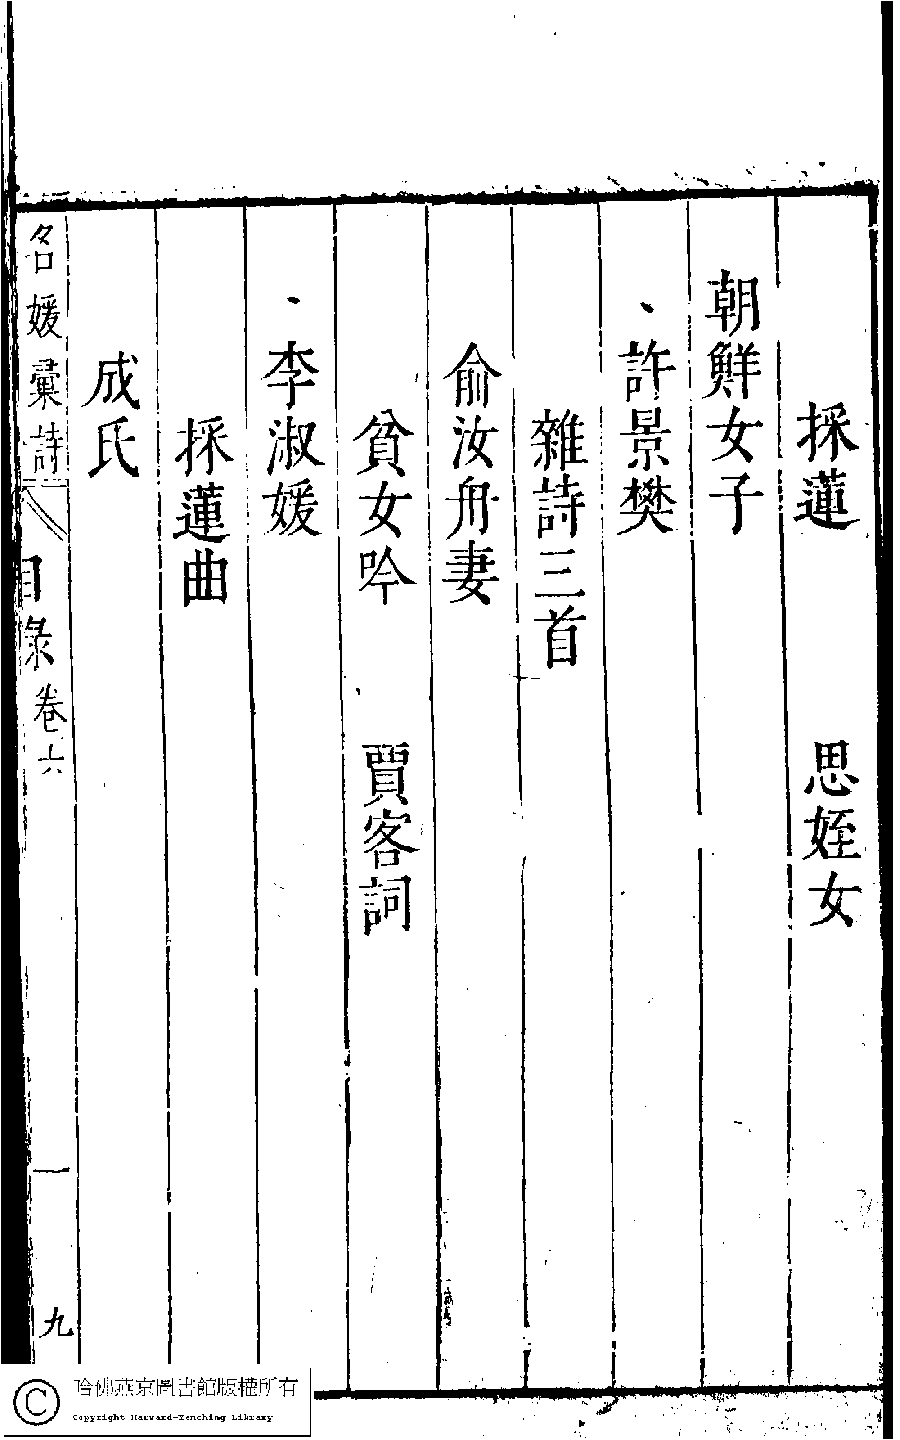 採蓮　思姪女
朝鮮女子
許景樊
雜詩三首
俞汝舟妻
貧女吟　賈客詞
李淑媛
採蓮曲
成氏
名媛彙詩　目錄卷六　一　九
哈佛燕京圖書館版權所有
Copyright Harvard-Yenching Library